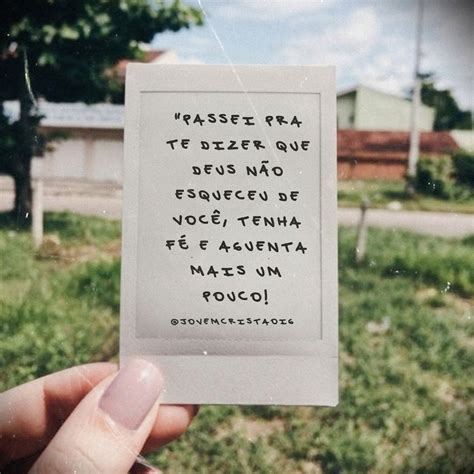 "PASSEI PRA
TE DIZER QUE
DEUS NÃO
ESQUECEU DE
VOCÊ, TENHA
FÉ E AGUENTA
MAIS UM
POUCO!
@JOVEMCRISTAOIG